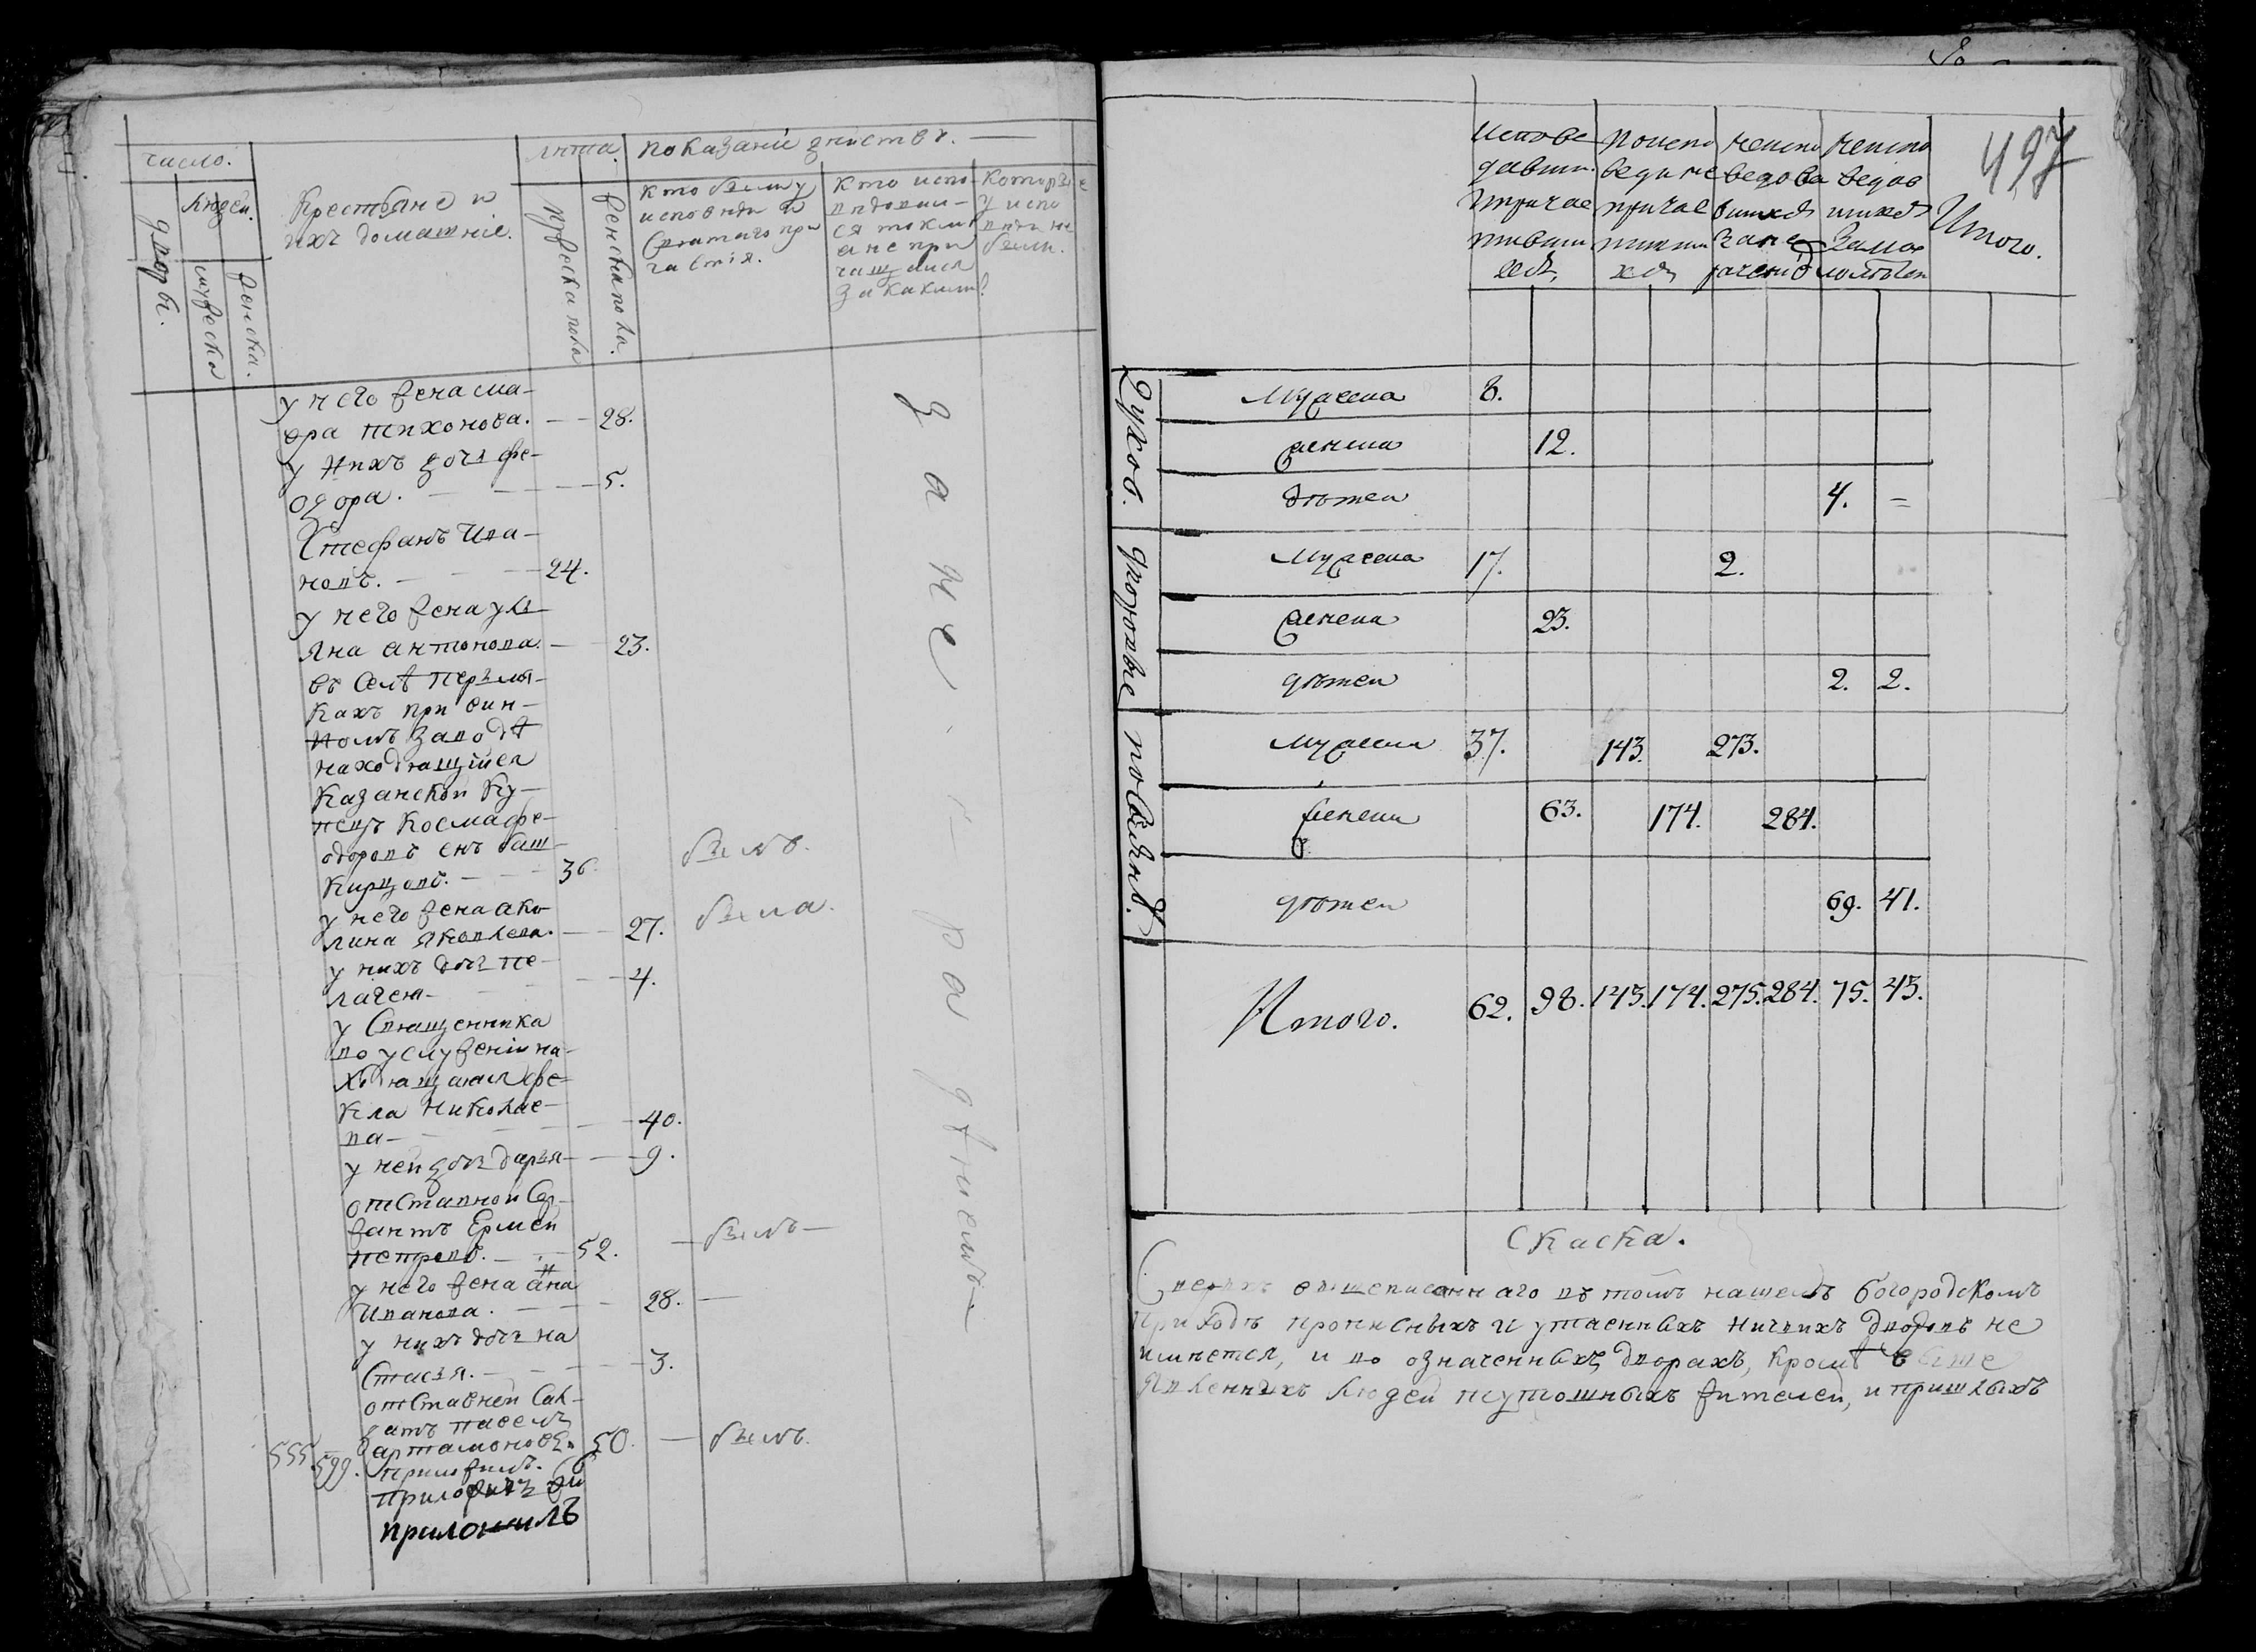 число.
людей.
дворы.
мужеска
женска.
Крестьяне и
ихъ домашнïе.
лѣта.
мужеска пола
женска пола.
показанïи дѣйствъ.
кто были у
исповѣди и
святаго при
частïя.
кто испо-
вѣдовали-
ся токмо
а не при
чащались
за какимъ?
которые
у испо
вѣди не
были.
у него жена ма-
ѳра тихонова. 28.
у нихъ дочь ѳе-
одора. 5.
Стефанъ Ива-
новъ. 24.
у него жена улі-
яна антонова. 23.
въ селѣ пермя-
кахъ при вин-
номъ заводѣ
находящïйся
казанской ку-
пецъ косма ѳе-
одоровъ снъ баш-
кирцовъ. 36. былъ.
у него жена аку-
лина яковлева. 27. была.
у нихъ дочь пе-
лагея 4.
у священника
во услуженïи на-
ходящаяся ѳе-
кла николае-
ва 40.
у ней дочь дарья 9.
отставной сер-
жантъ Ермей
петровъ. 52. былъ
у него жена анна
Иванова. 28.
у нихъ дочь на
стасья. 3.
отставней сол-
датъ павелъ
555. 599. артамоновъ 50. былъ.
приложилъ.
приложилъ
за не-
радѣнïемъ
497
испове
давши.
и причас
тивши
хся
по испо
веди не
причас
тивши
хся
неиспо
ведова
вшихся
за не
раченïе
неиспо
ведов
шихся
за мал
олѣтсв
Итого.
Духов.
мужеска 8.
женска 12.
дѣтей 4. =
дворовые
мужеска 17. 2.
женска 23.
дѣтей 2. 2.
поселянъ.
мужеска 37. 143. 273.
женска 63. 174. 284.
дѣтей 69. 41.
Итого. 62. 98. 143. 174. 275. 284. 75. 43.
Скаска.
Сверхъ вышеписаннаго въ томъ нашемъ богородскомъ
приходѣ прописныхъ и утаенныхъ ничьихъ дворовъ не
имѣется, и во означенныхъ дворахъ, кромѣ выше
явленныхъ людей неутошныхъ жителей, и пришлыхъ